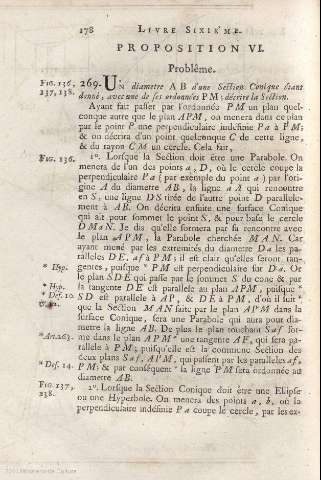 178 LIVRE SIXIEME.
PROPOSITION VI.
Problême.
FIG. 136, 137, 138.
269. UN diametre AB d'une Section Conique étant
donné, avec une de ses ordonnées PM; décrire la Section.
Ayant fait passer par l'ordonnée PM un plan quel-
conque autre que le plan APM, on menera dans ce plan
par le point P une perpendiculaire indéfinie Pa à PM;
& on décrira d'un point quelconque C de cette ligne,
& du rayon CM un cercle. Cela fait,
FIG. 136.
1°. Lorsque la Section doit être une Parabole. On
menera de l'un des points a, D, où le cercle coupe la
perpendiculaire Pa (par exemple du point a) par l'ori-
gine A du diametre AB, la ligne aA qui rencontre
en S, une ligne DS tirée de l'autre point D parallele-
ment à AB. On décrira ensuite une surface Conique
qui ait pour sommet le point S, & pour base le cercle
DMaN. Je dis qu'elle formera par sa rencontre avec
le plan APM, la Parabole cherchée MAN. Car
ayant mené par les extremités du diametre Da les pa-
ralleles DE, af à PM; il est clair qu'elles seront tan-
* Hyp.
gentes, puisque * PM est perpendiculaire sur Da. Or
le plan SDE qui passe par le sommet S du cone &, par
* Hyp.
la tangente DE est parallele au plan APM, puisque *
* Def. 10.
SD est parallele à AP, & DE à PM, d'où il suit *
que la Section MAN faite par le plan APM dans la
surface Conique, sera une Parabole qui aura pour dia-
metre la ligne AB. De plus le plan touchant Saf for-
* Art. 263.
me dans le plan APM * une tangente AE, qui sera pa-
rallele à PM; puisqu'elle est la commune Section des
deux plans Saf, APM, qui passent par les paralleles af,
* Def. 14.
PM; & par conséquent * la ligne PM sera ordonnée au
diametre AB.
FIG. 137, 138.
2°. Lorsque la Section Conique doit être une Ellipse
ou une Hyperbole. On menera des points a, b, où la
perpendiculaire indéfinie Pa coupe le cercle, par les ex-